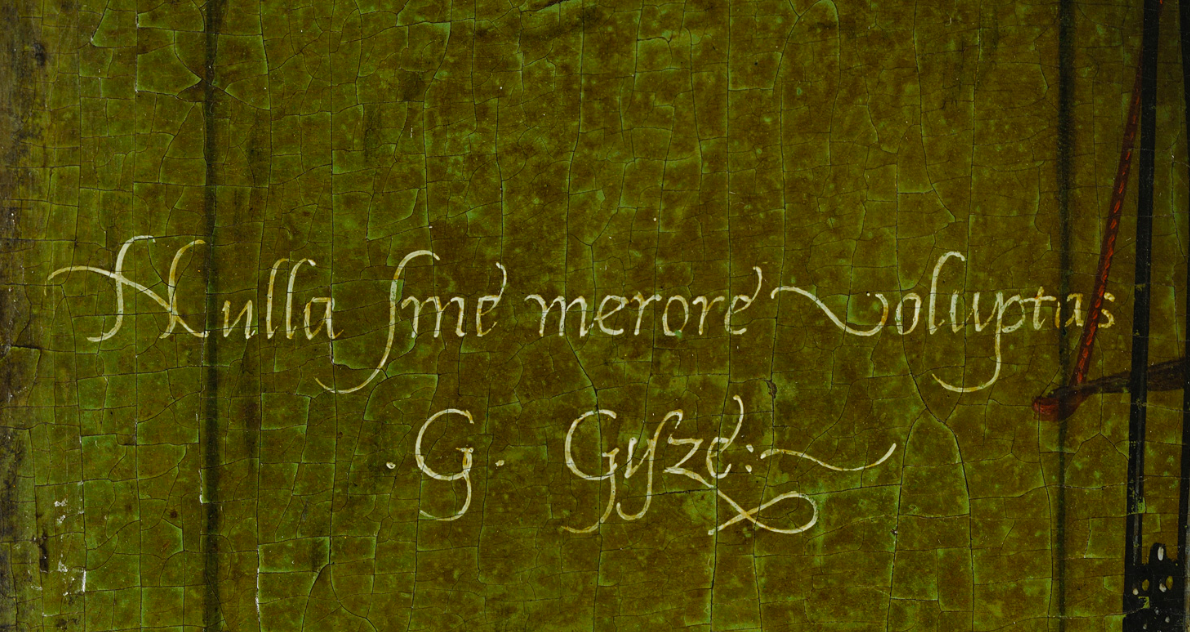 Nulla sine merore voluptas
·G· Gysze: